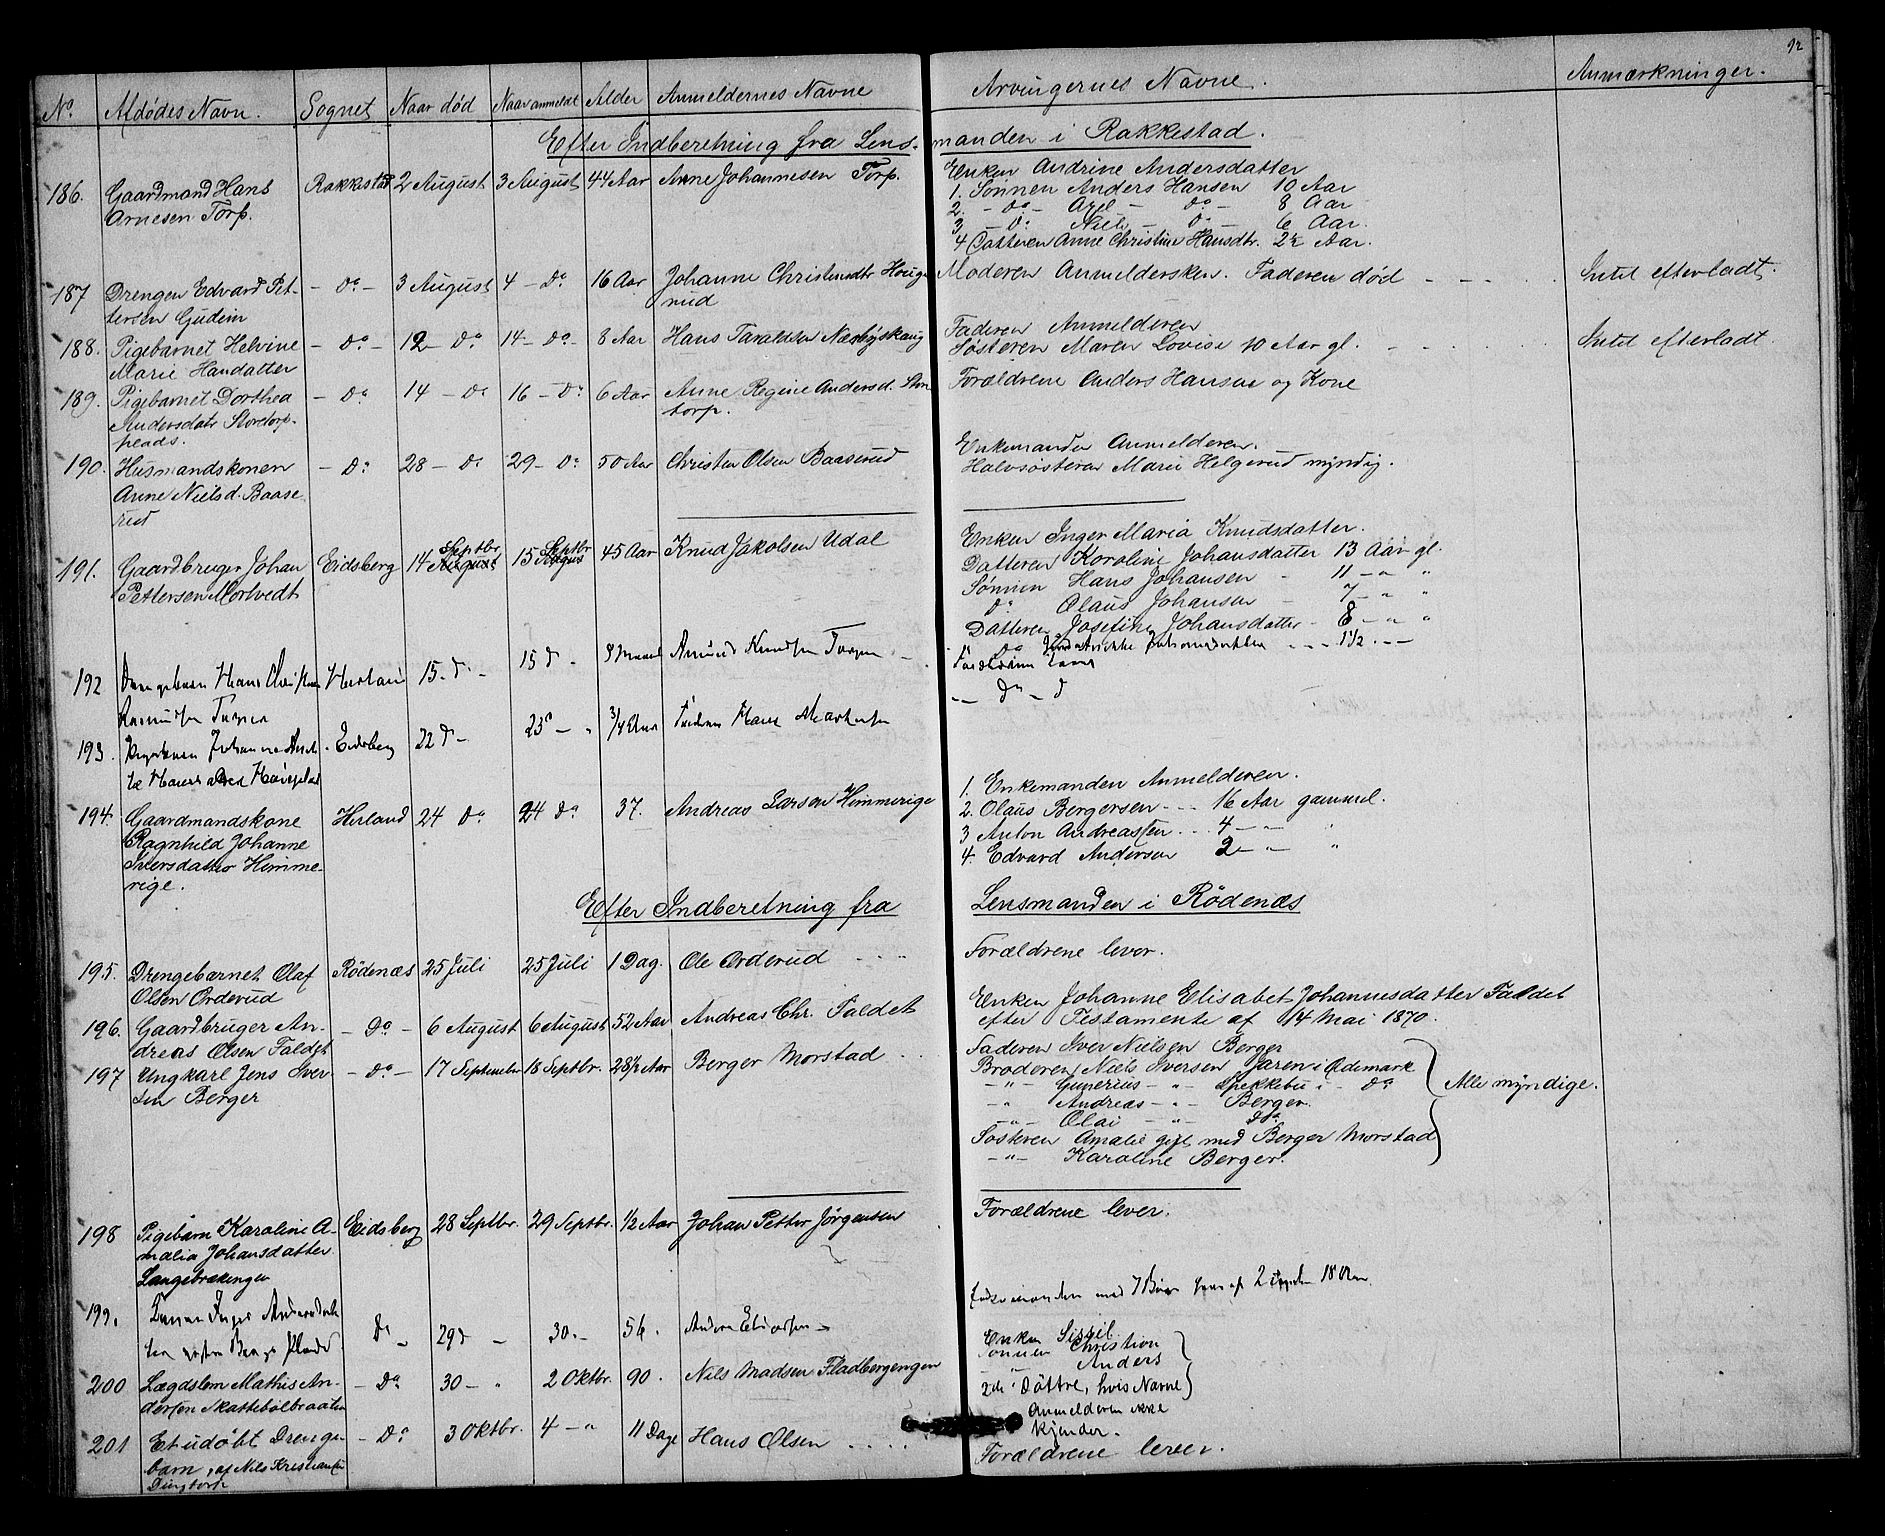 92
No. Afdødes Navn. Sognet Naar død Naar anmeldt Alder Anmeldernes Navne Arvingernes Navne. Anmærkninger.
Efter Indberetning fra Lensmanden i Rakkestad.
186. Gaardmand Hans Rakkestad 2 August 3 August 44 Aar Arne Johannesen Torp. Enken Andrine Andersdatter
Arnesen Torp.
1. Sønnen Anders Hansen 10 Aar
2. - do - Axel - do - 8 Aar
3 - do Niels - do - 6 Aar.
4 Datteren Anne Christine Hansdtr. 2½ Aar.
187 Drengen Edvard Pet- - do - 3 August 4 - do 16 Aar Johanne Christensdtr Moderen Anmeldersken. Faderen død - - - . Intet efterladt.
tersen Gudim
188. Pigebarnet Helvine - do - 12 - do 14 - do - 8 Aar Hans Taraldsen Næsbyskaug Faderen Anmelderen
Marie Handatter
Søsteren Maren Lovise 10 Aar gl. - - . . . Intet efterladt.
189. Pigebarnet Dorthea - do 14 - do 16 - do 6 Aar Anne Regine Andersd. Stor Forældrene Anders Hansen og Kone
Andersdatr Stortorp- torp.
pleads.
190. Husmandskonen - do 28 - do 29 - do 50 Aar Christen Olsen Baaserud Enkemanden Anmelderen.
Anne Nielsd. Baase
rud
Halvsøsteren Marie Helgerud myndig.
191. Gaardbruger Johan Eidsberg 14 Septbr. August 15 Septbr August 45 Aar Knud Jakobsen Udal Enken Inger Maria Knudsdatter.
Pettersen Mortvedt
Datteren Karoline Johansdatter 13 Aar gl.
Sønnen Hans Johansen - 11 - " "
do Olaus Johansen - 7 - " "
Datteren Josefine Johansdatter - 8 - " "
" do Johansdatter - - - 1½ . - -
192 Drengebarn Hans Christian Herland 15. do - 15 do - Amund Knudsen - Forældrene
193. Pigebarn Johanne Eidsberg 22 do - 23 - " 3/4 Aar Faderen Hans - do - d
194. Gaardmandskone Herland 24 do 24 do 37. Andreas Larsen Himmerige 1. Enkemanden Anmelderen.
Ragnhild Johanne
Iversdatter Himme-
rige.
2. Olaus Bergersen - - - 16 Aar gammel.
3 Anton Andreassen . . . 4 - " "
4. Edvard Andersen 2 - " "
Efter Indberetning fra Lensmanden i Rødenæs
195. Drengebarnet Olaf Rødenæs 25 Juli 25 Juli 1 Dag. Ole Orderud - - - Forældrene lever.
Olsen Orderud
196. Gaardbruger An- - do - 6 August 6 August 52 Aar Andreas Chr. Faldet Enken Johanne Elisabet Johannesdatter Faldet
dreas Olsen Faldet
efter Testamente af 14 Mai 1870.
197 Ungkarl Jens Iver- - do - 17 September 18 Septbr. 28½ Aar Berger Morstad . . Faderen Iver Nielsen Berger
sen Berger
Broderen Niels Iversen Jaren i Ødemark
- " - Gunerius - " - Spekkebu i - do
- " Andreas - " - Berger.
- " - Olai - " - do
Søsteren Amalie gift med Berger Morstad
- " - Karoline Berger.
Alle myndige.
198 Pigebarn Karoline A- Eidsberg 28 Septbr. 29 Septbr. 1/2 Aar Johan Petter Jørgensen Forældrene lever.
malia Johansdatter
Langebrækengen
199. Inger do - 29 do - 30. - 56. Anders - med 7 Børn 2 18 Aar
200 Lægdslem Mathis An- - do - 30 - " 2 Oktbr. 90. Nils Madsen Fladbergengen Enken Sissil
dersen Skattebølbraaten
Sønnen Christian
- " Anders
2de Døttre, hvis Navne
Anmelderen ikke
kjender.
201 Et udøbt Drenge- - do 3 Oktbr. 4 - " 11 Dage Hans Olsen . . . . Forældrene lever.
barn, af Nils Kristiansen